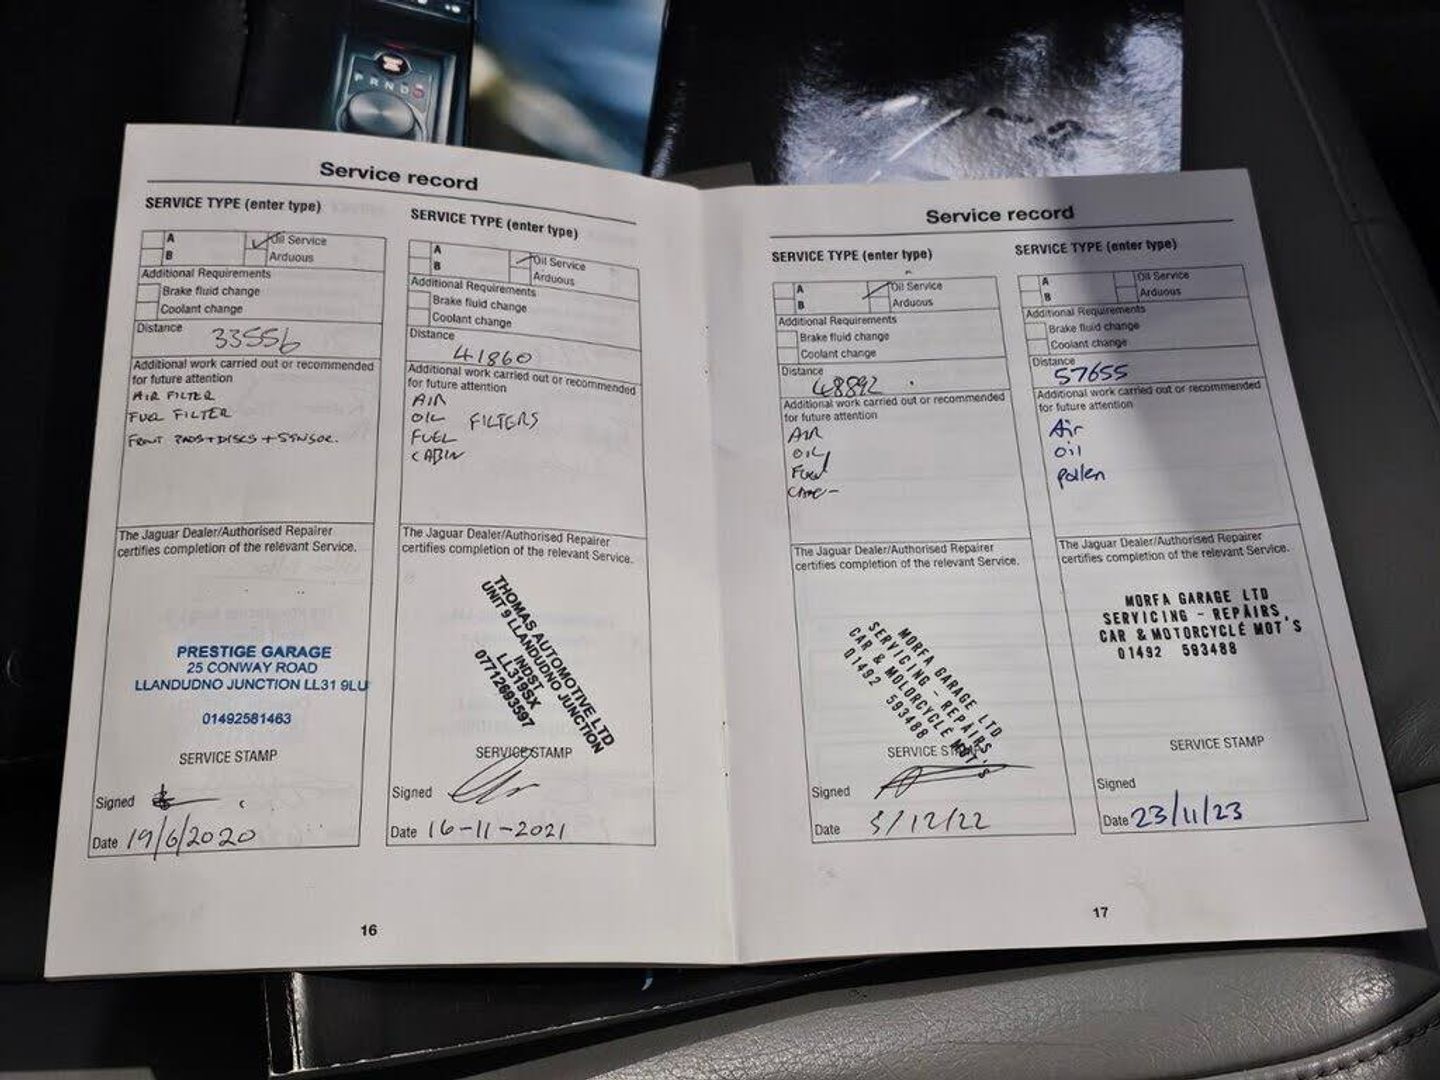 P R N D S
Service record
SERVICE TYPE (enter type)
A
Oil Service
B
Arduous
Additional Requirements
Brake fluid change
Coolant change
Distance
33556
Additional work carried out or recommended
for future attention
AIR FILTER
FUEL FILTER
FRONT PADS + DISCS + SENSOR.
The Jaguar Dealer/Authorised Repairer
certifies completion of the relevant Service.
PRESTIGE GARAGE
25 CONWAY ROAD
LLANDUDNO JUNCTION LL31 9LU
01492581463
SERVICE STAMP
Signed
Date 19/6/2020
SERVICE TYPE (enter type)
A
Oil Service
B
Arduous
Additional Requirements
Brake fluid change
Coolant change
Distance
41860
Additional work carried out or recommended
for future attention
AIR
OIL FILTERS
FUEL
CABIN
The Jaguar Dealer/Authorised Repairer
certifies completion of the relevant Service.
THOMAS AUTOMOTIVE LTD
UNIT 9 LLANDUDNO JUNCTION
INDST
LL319SX
07712693597
SERVICE STAMP
Signed
Date 16-11-2021
16
Service record
SERVICE TYPE (enter type)
A
Oil Service
B
Arduous
Additional Requirements
Brake fluid change
Coolant change
Distance
48892
Additional work carried out or recommended
for future attention
AIR
OIL
Fuel
The Jaguar Dealer/Authorised Repairer
certifies completion of the relevant Service.
MORFA GARAGE LTD
SERVICING - REPAIRS
CAR & MOTORCYCLE MOT'S
01492 593488
SERVICE STAMP
Signed
Date 5/12/22
SERVICE TYPE (enter type)
A
Oil Service
B
Arduous
Additional Requirements
Brake fluid change
Coolant change
Distance
57655
Additional work carried out or recommended
for future attention
Air
oil
pollen
The Jaguar Dealer/Authorised Repairer
certifies completion of the relevant Service.
MORFA GARAGE LTD
SERVICING - REPAIRS,
CAR & MOTORCYCLE MOT'S
01492 593488
SERVICE STAMP
Signed
Date 23/11/23
17